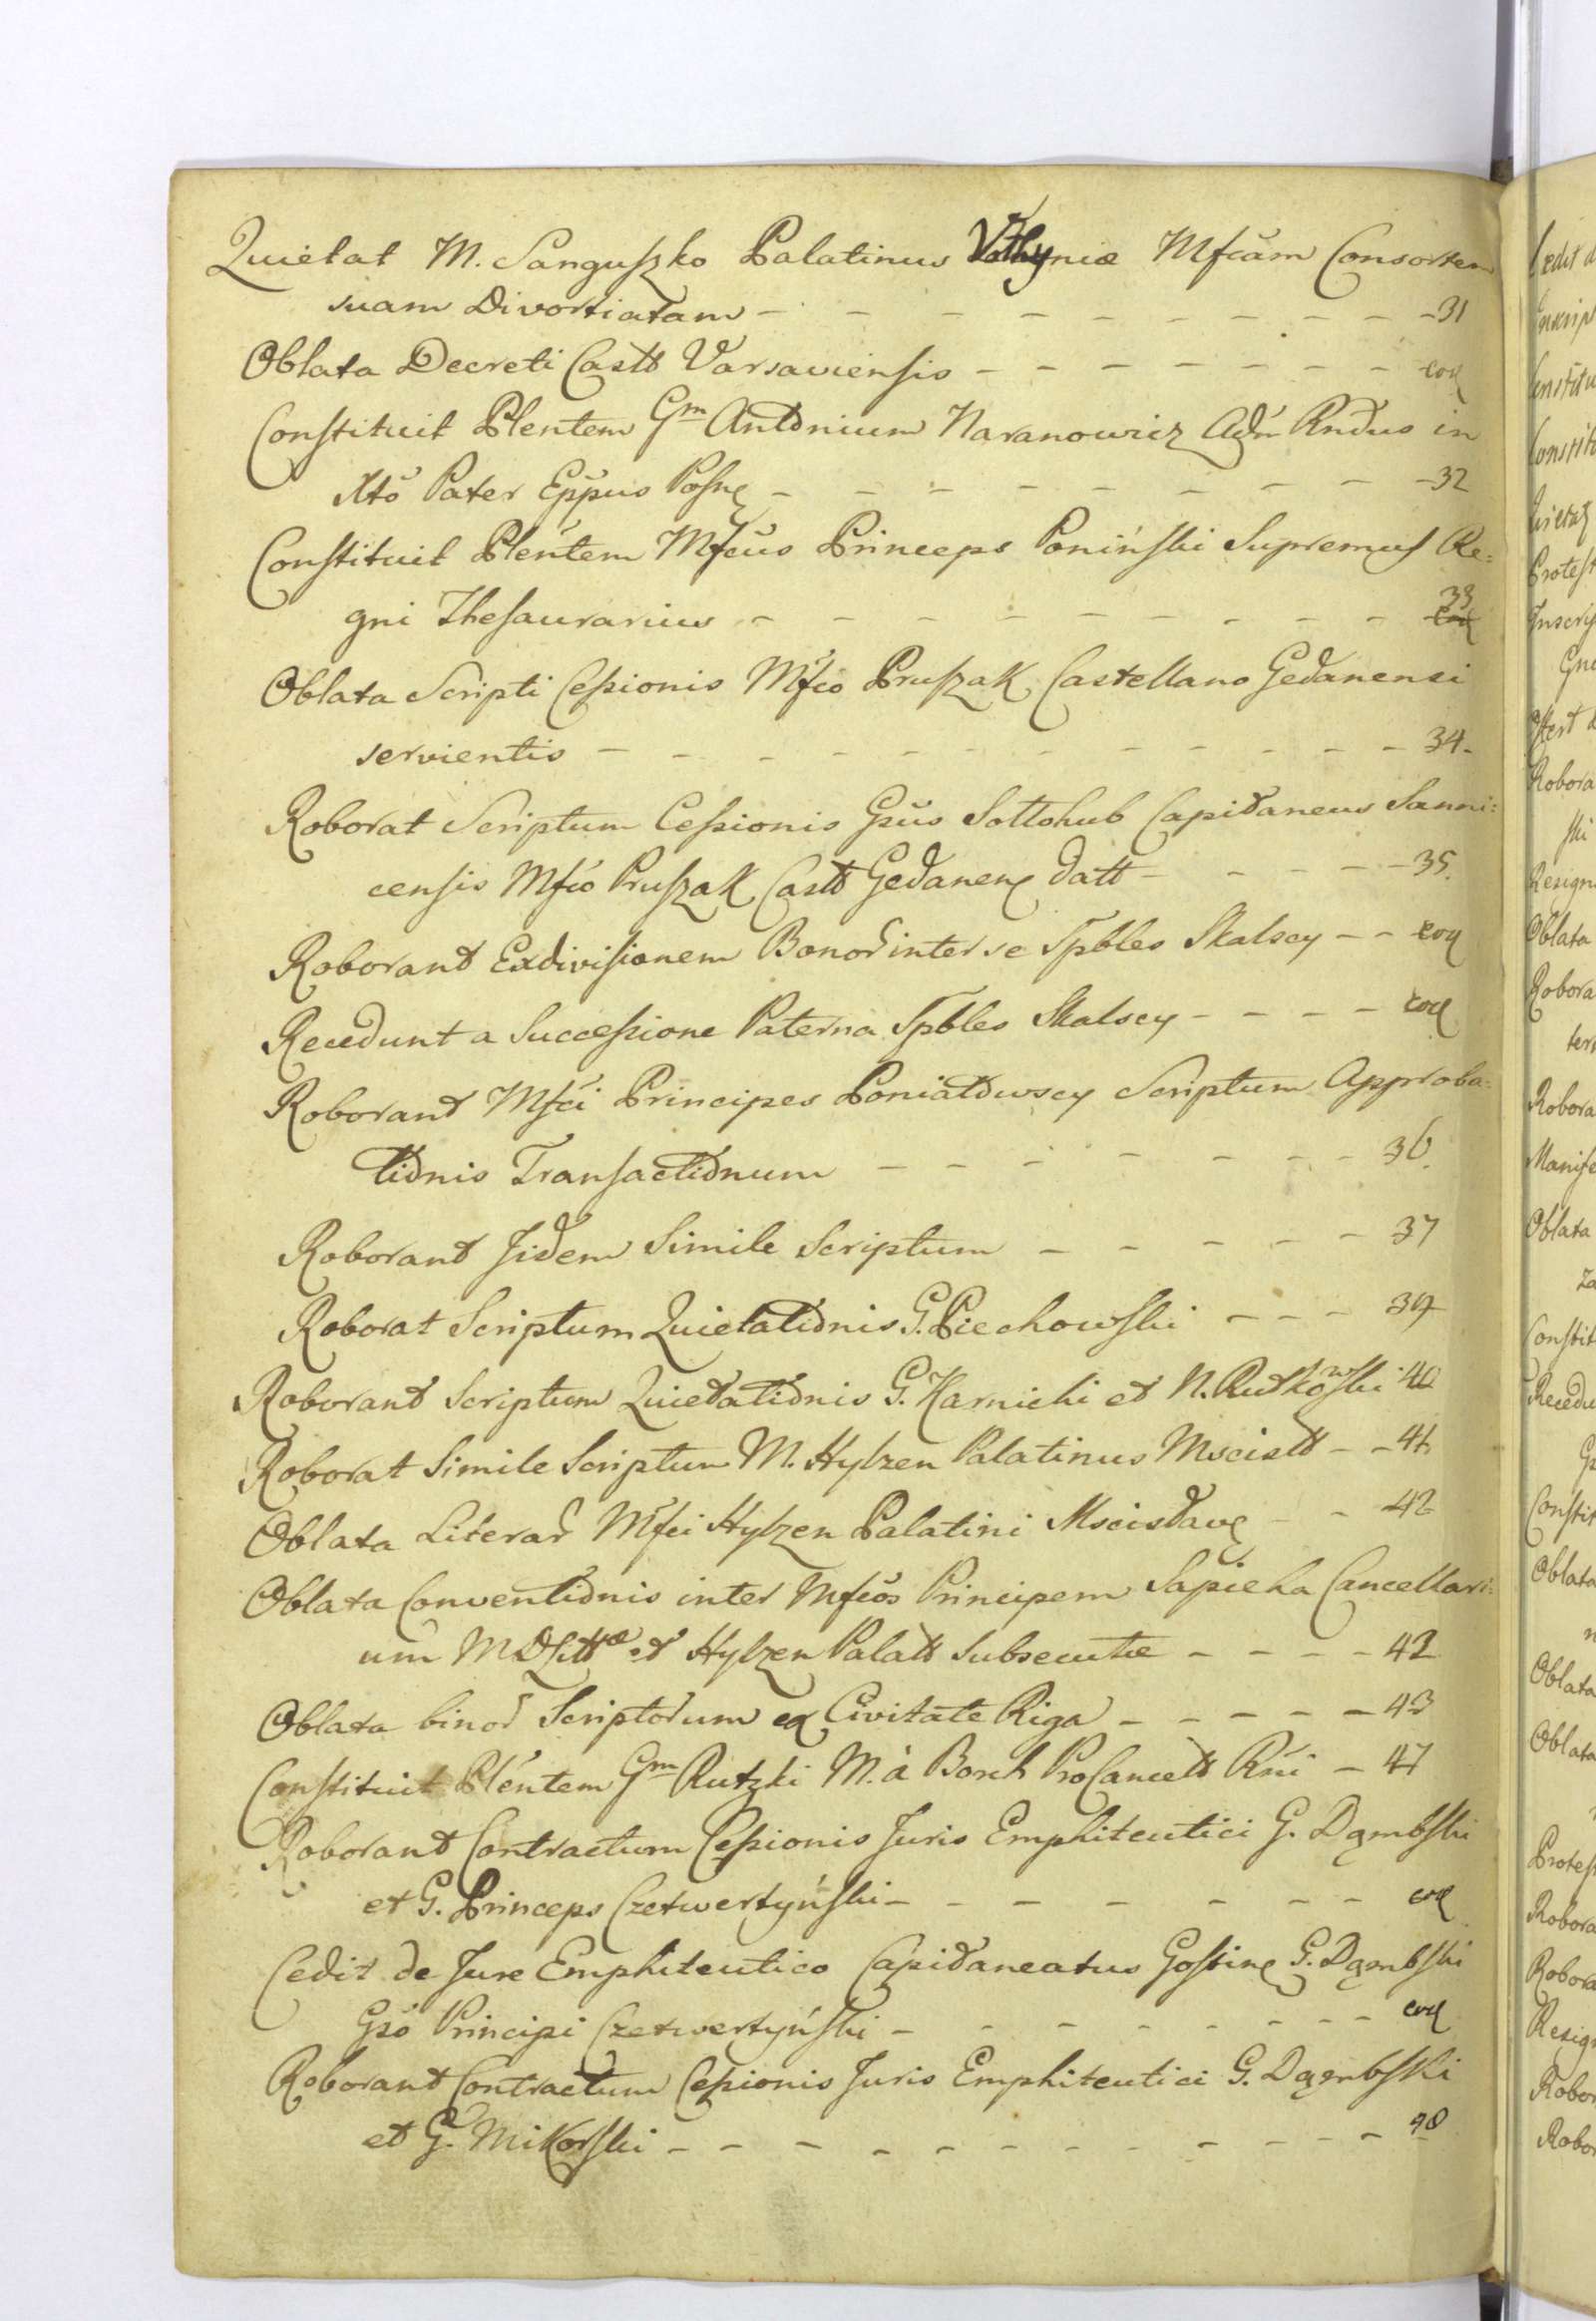 Quietat M. Sanguszko Palatinus Volhyniæ Mfcam Consortem
suam Divortiatam - - - - - - - - - 31
Oblata Decreti Castt Varsaviensis - - - - - - - eoq
Constituit Plentem Gm Antonium Naranowicz Adm Rndus in
Xto Pater Eppus Posnę - - - - - - - - - 32
Constituit Plentem Mfcus Princeps Poniński Supremus Re=
gni Thesaurarius - - - - - - - - - 33
Oblata Scripti Cessionis Mfco Pruszak Castellano Gedanensi
servientis - - - - - - - - - - 34.
Roborat Scriptum Cessionis Gsus Sottohub Capitaneus Sanni=
censis Mfco Pruszak Castt Gedanenę datt - - - - 35.
Roborant Exdivisionem Bonor inter se Spbles Skalscy - - eoq
Recedunt a Successione Paterna Spbles Skalscy - - - - eoq
Roborant Mfci Principes Poniatowscy Scriptum Approba=
tionis Transactionum - - - - - - - 36.
Roborant Jidem Simile Scriptum - - - - - 37
Roborat Scriptum Quietationis G. Piechowski - - - 39
Roborant Scriptum Quietationis G. Karnicki et N. Rutkowski 40
Roborat Simile Scriptum M. Hylzen Palatinus Mscistt - - 41.
Oblata Literar Mfci Hylzen Palatini Mscisławę - - 42
Oblata Conventionis inter Mfcos Principem Sapieha Cancellari=
um MDLittæ et Hylzen Palatt Subsecutæ - - - - 42
Oblata binor Scriptorum ex Civitate Riga - - - - - 43
Constituit Plentem Gm Rutzki M. à Borch ProCancett Rni - 47
Roborant Contractum Cessionis Juris Emphiteutici G. Dąmbski
et G. Princeps Czetwertyński - - - - - - - eoq
Cedit de Jure Emphiteutico Capitaneatus Gostinę G. Dąmbski
Gso Principi Czetwertyński - - - - - - - eoq
Roborant Contractum Cessionis Juris Emphiteutici G. Dąmbski
et G. Mikorski - - - - - - - - - - 48